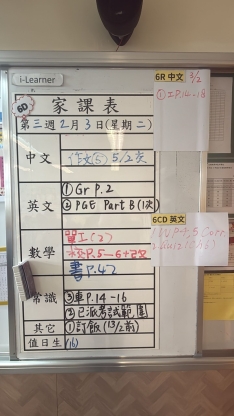 i-Learner
6D
家課表
第三週2月3日(星期二)
中文
作文(5) 5/2交
英文
①Gr P.2
②PGE Part B (1次)
數學
單工(2)
P.5-6+改
書P.47
常識
③車P.14-16
②已派考試範圍
其它
①訂飯(13/2前)
值日生
(16)
6R 中文 3/2
①工P.14-18
6CD 英文